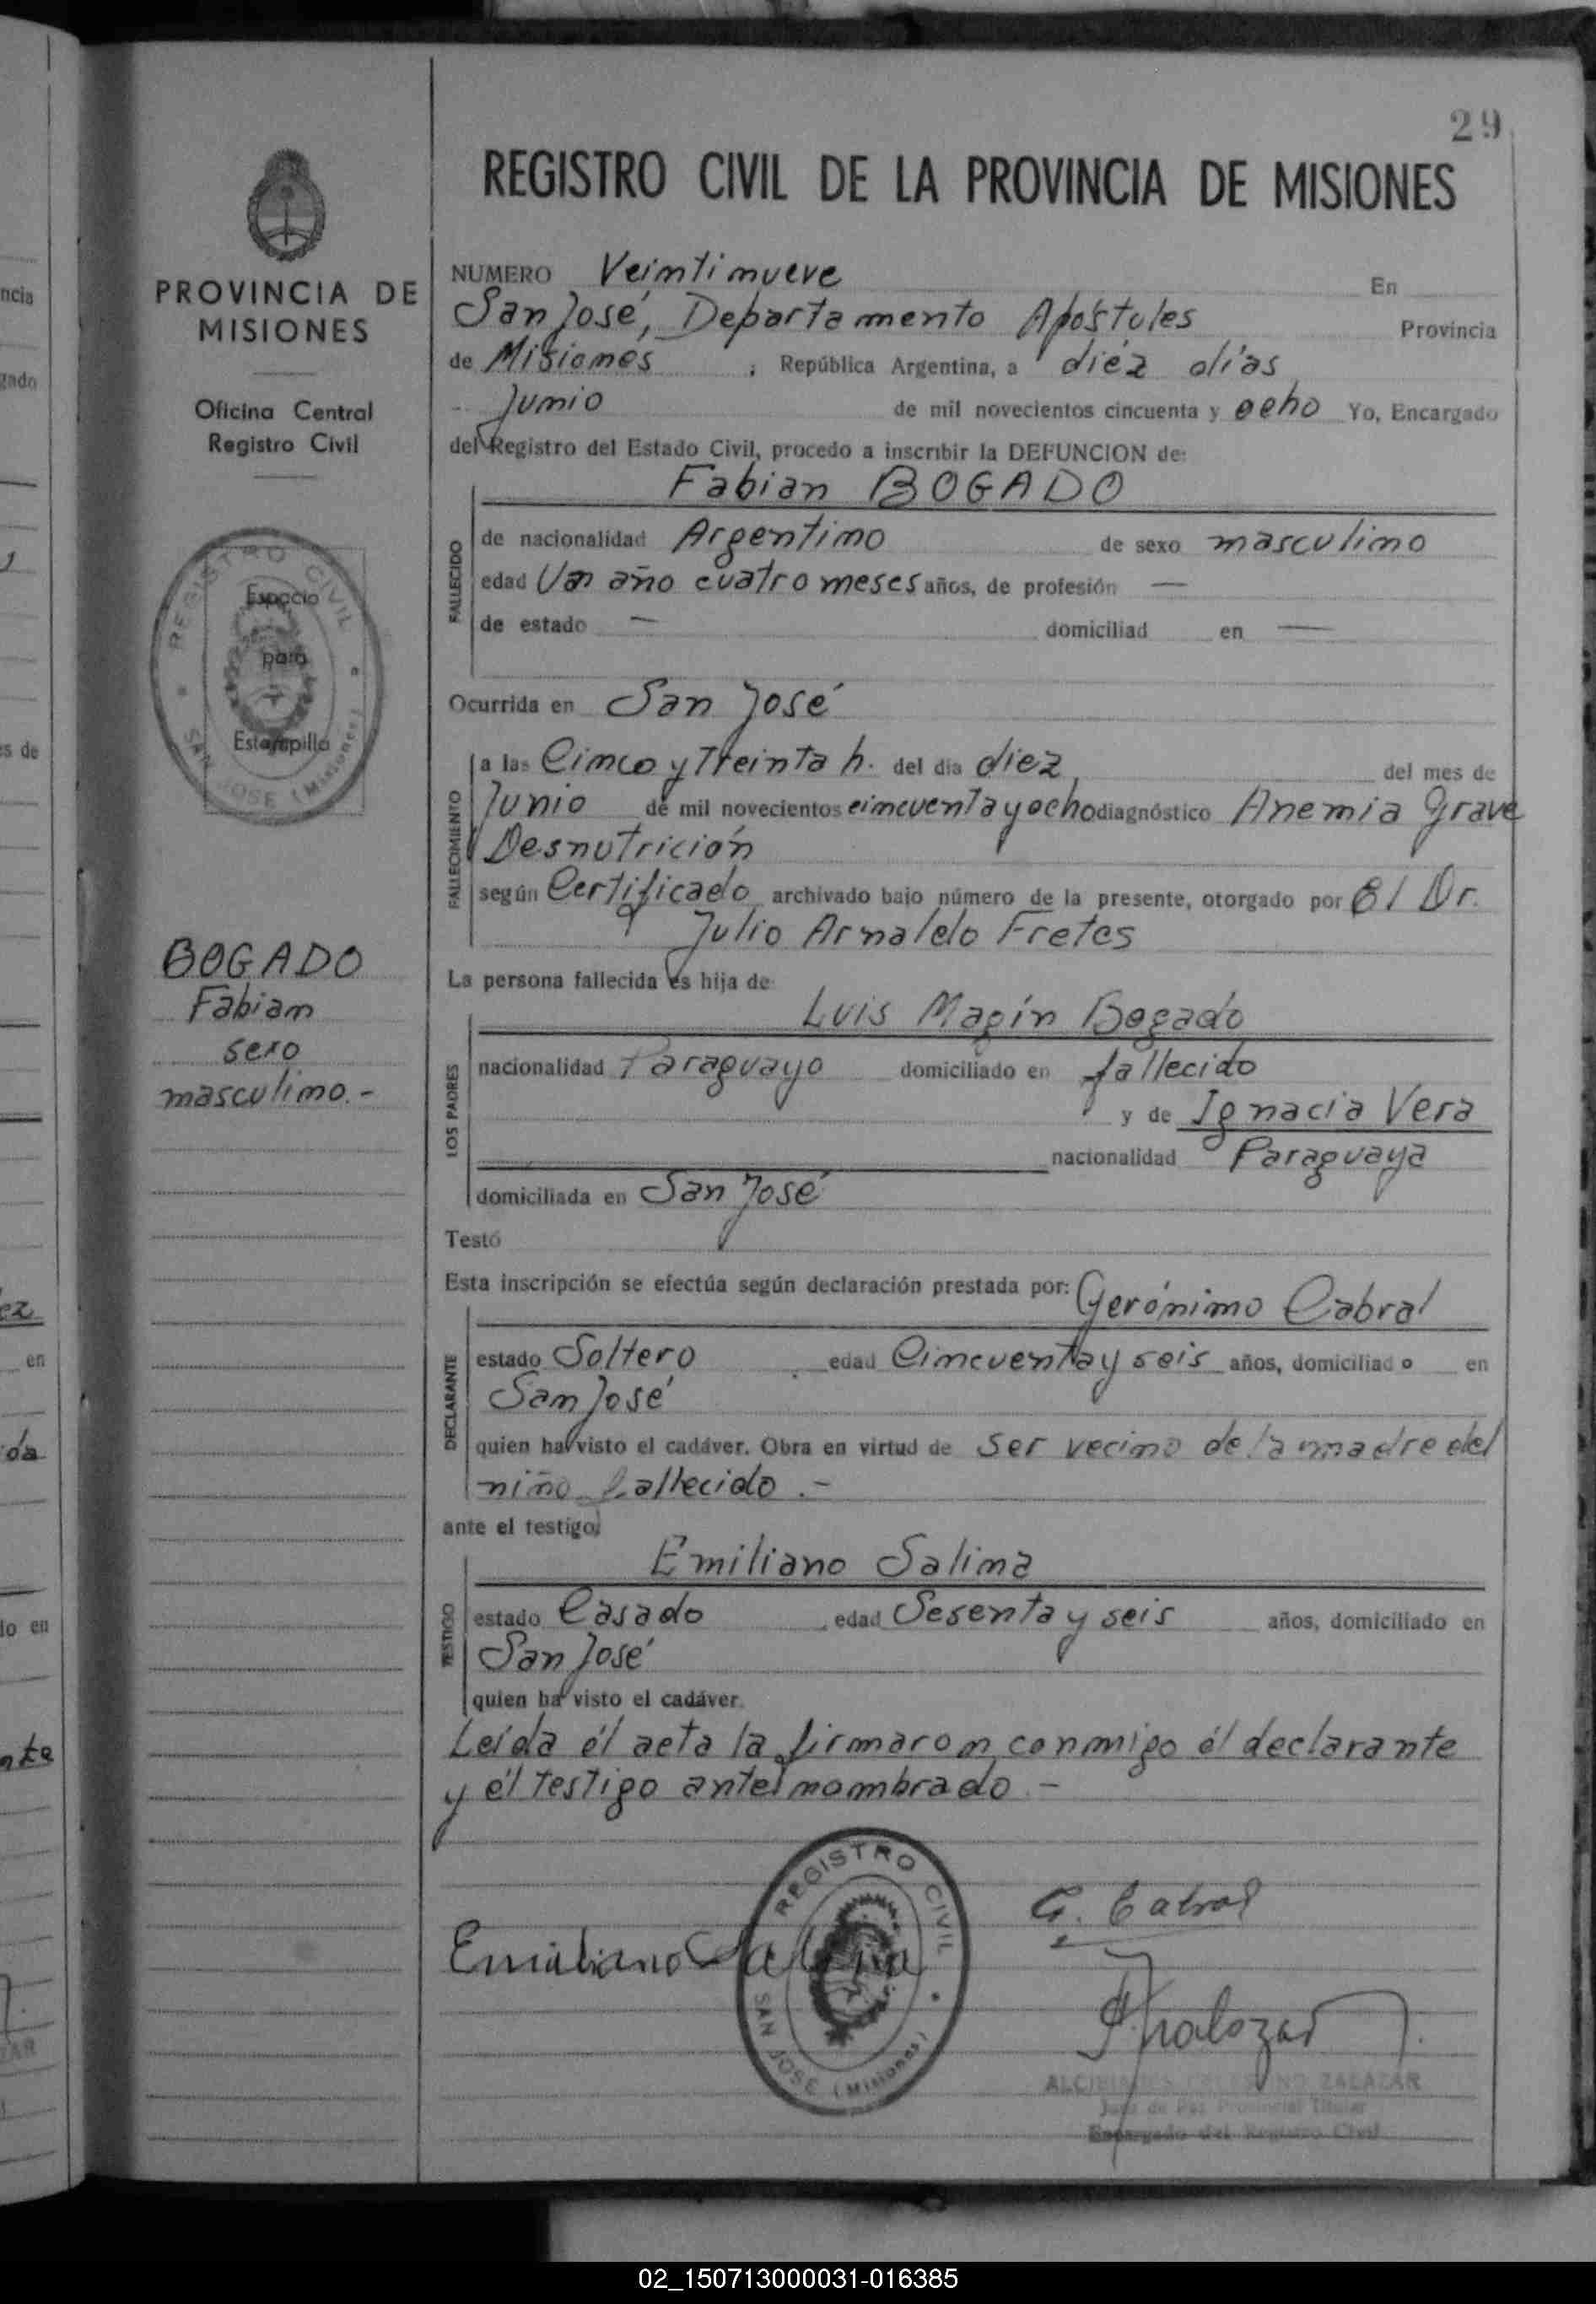 29
REGISTRO CIVIL DE LA PROVINCIA DE MISIONES
PROVINCIA DE
MISIONES
Oficina Central
Registro Civil
REGISTRO CIVIL
SAN JOSE (Misiones)
Espacio
para
Estampilla
BOGADO
Fabiam
sexo
masculimo.-
NUMERO Veimtimueve En
San José, Departamento Apóstoles Provincia
de Misiomes ; República Argentina, a diéz días
Junio de mil novecientos cincuenta y ocho Yo, Encargado
del Registro del Estado Civil, procedo a inscribir la DEFUNCION de:
FALLECIDO
Fabian BOGADO
de nacionalidad Argentimo de sexo masculimo
edad Un año cuatro meses años, de profesión —
de estado — domiciliad en —
Ocurrida en San José
FALLECIMIENTO
a las Cimco y Treinta h. del dia diez del mes de
Junio de mil novecientos cimcuenta y ocho diagnóstico Anemia Grave
Desnutrición
según Certificado archivado bajo número de la presente, otorgado por El Dr.
Julio Arnaldo Fretes
La persona fallecida es hija de:
LOS PADRES
Luis Magín Bogado
nacionalidad Paraguayo domiciliado en fallecido
y de Ignacia Vera
nacionalidad Paraguaya
domiciliada en San José
Testó
Esta inscripción se efectúa según declaración prestada por: Gerónimo Cabral
DECLARANTE
estado Soltero edad Cimcuenta y seis años, domiciliado en
San José
quien ha visto el cadáver. Obra en virtud de ser vecimo de la madre del
niño fallecido.-
ante el testigo:
TESTIGO
Emiliano Salima
estado Casado edad Sesenta y seis años, domiciliado en
San José
quien ha visto el cadáver.
Leída él acta la firmaron conmigo él declarante
y él testigo antes mombrado.-
REGISTRO CIVIL
SAN JOSE (Misiones)
G. Cabral
Emiliano Salina
ZALAZAR
Juez de Paz Provincial Titular
Encargado del Registro Civil
02_150713000031-016385